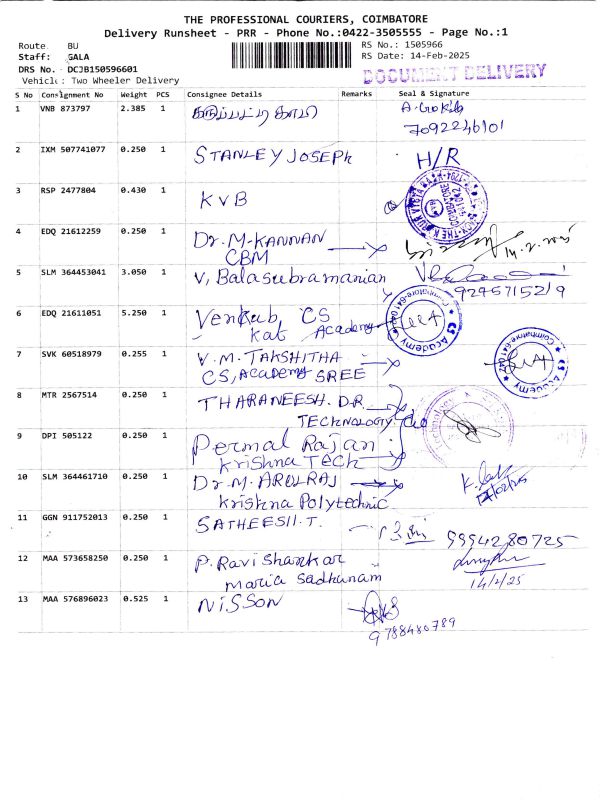 THE PROFESSIONAL COURIERS, COIMBATORE
Delivery Runsheet - PRR - Phone No.:0422-3505555 - Page No.:1
Route BU
RS No.: 1505966
Staff: GALA
RS Date: 14-Feb-2025
DRS No. DCJB150596601
Vehicle: Two Wheeler Delivery
DOCUMENT DELIVERY
S No Consignment No Weight PCS Consignee Details Remarks Seal & Signature
1 VNB 873797 2.385 1
7092246101
2 IXM 507741077 0.250 1 STANLEY JOSEPH H/R
3 RSP 2477804 0.430 1 KVB
4 EDQ 21612259 0.250 1 Dr. M. KANNAN
CBM
5 SLM 364453041 3.050 1 V, Balasubramanian
9245715219
6 EDQ 21611051 5.250 1 Venkub, CS
kat Academy
CS Academy
Coimbatore-641 042
7 SVK 60518979 0.255 1 V. M. TAKSHITHA
CS, Academy SREE
CS Academy
Coimbatore-641 042
8 MTR 2567514 0.250 1 THARANEESH. D.R
TECHNOLOGY
9 DPI 505122 0.250 1 Permal Rajan
Krishna Tech
10 SLM 364461710 0.250 1 Dr. M. ARULRAJ
Krishna Polytechnic
11 GGN 911752013 0.250 1 SATHEESH. T.
9994280725
12 MAA 573658250 0.250 1 P. Ravi Shankar
Maria Sadhunam
14/2/25
13 MAA 576896023 0.525 1 NISSON
9788480789